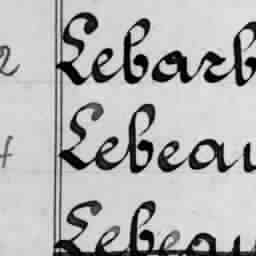 2 Lebarb
4 Lebeau
Lebeau